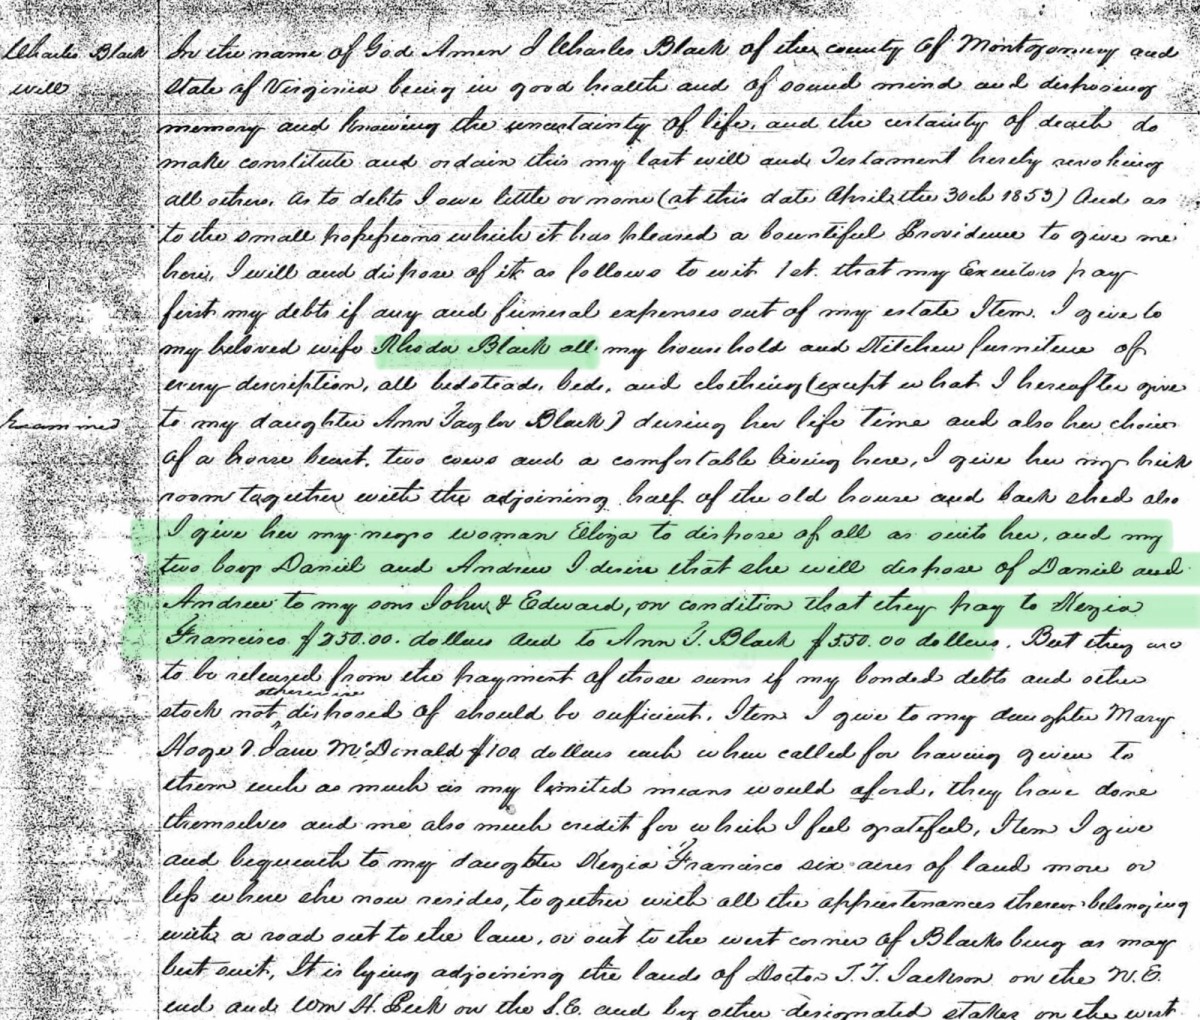 Charles Black
will
In the name of God Amen I Charles Black of the county of Montgomery and
State of Virginia being in good health and of sound mind and disposing
memory and knowing the uncertainty of life, and the certainty of death do
make constitute and ordain this my last will and Testament hereby revoking
all others. as to debts I owe little or none (at this date April the 30th 1853) And as
to the small possessions which it has pleased a bountiful Providence to give me
here, I will and dispose of it as follows to wit 1st. that my Executors pay
first my debts if any and funeral expenses out of my estate Item. I give to
my beloved wife Rhoda Black all my household and Kitchen furniture of
every description, all bedsteads, beds, and clothing (except what I hereafter give
Examined
to my daughter Ann Taylor Black) during her life time and also her choice
of a horse beast, two cows and a comfortable living here, I give her my brick
room together with the adjoining half of the old house and back shed also
I give her my negro woman Eliza to dispose of all as suits her, and my
two boys Daniel and Andrew I desire that she will dispose of Daniel and
Andrew to my sons John & Edward, on condition that they pay to Kezia
Francisco $250.00. dollars and to Ann T. Black $550.00 dollars. But they are
to be released from the payment of those sums if my bonded debts and other
stock not otherwise disposed of should be sufficient. Item I give to my daughter Mary
Hoge & Jane McDonald $100 dollars each when called for having given to
them each as much as my limited means would aford, they have done
themselves and me also much credit for which I feel grateful, Item I give
and bequeath to my daughter Kezia Francisco six acres of land more or
less where she now resides, together with all the appurtenances thereon belonging
with a road out to the lane, or out to the west corner of Blacksburg as may
best suit, It is lying adjoining the lands of Doctor T.T. Jackson on the N.E.
end and Wm H. Peck on the S.E. and by other designated stakes on the west